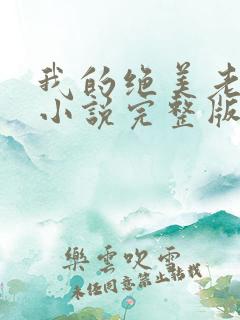 我的绝美老
小说完整版
樂雲吹雪
未经同意禁止转载